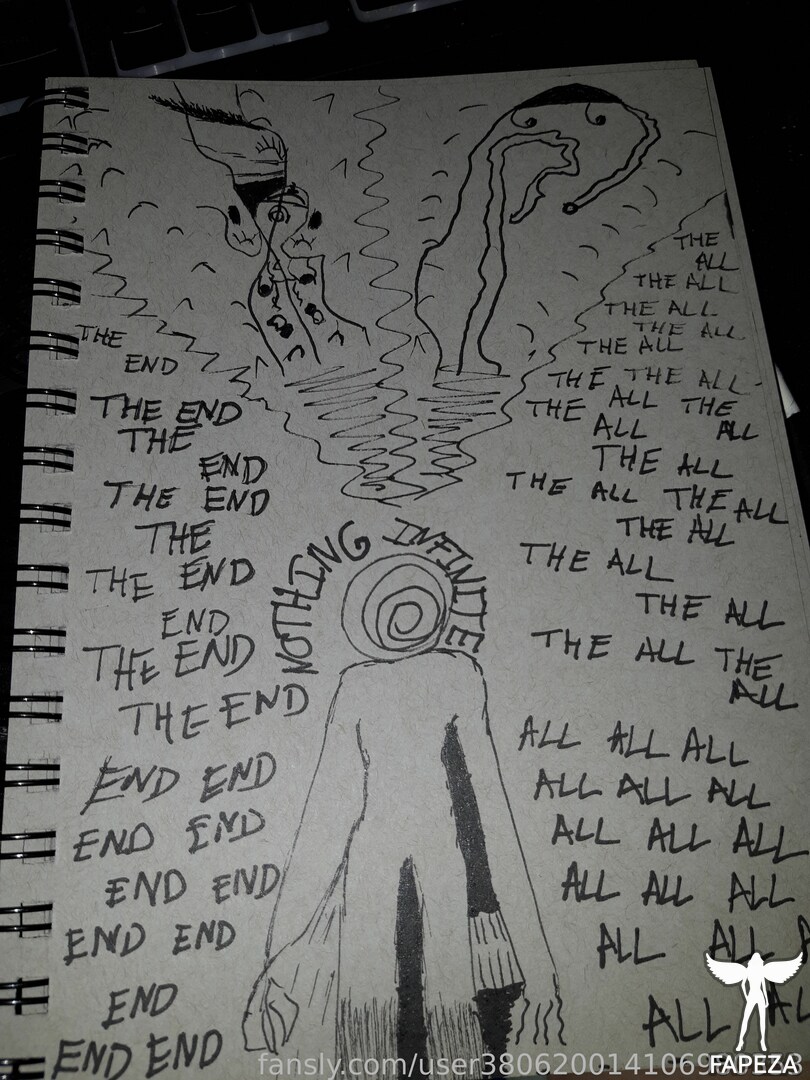 THE
END
THE END
THE
END
THE END
THE
THE END
END
THE END
THE END
END END
END END
END END
END END
END
END END
NOTHING INFINITE
THE
ALL
THE ALL
THE ALL
THE ALL
THE ALL
THE THE ALL
THE ALL THE
ALL ALL
THE ALL
THE ALL THE ALL
THE ALL
THE ALL
THE ALL
THE ALL THE
ALL
ALL ALL ALL
ALL ALL ALL
ALL ALL ALL
ALL ALL ALL
ALL ALL
ALL
FAPEZA